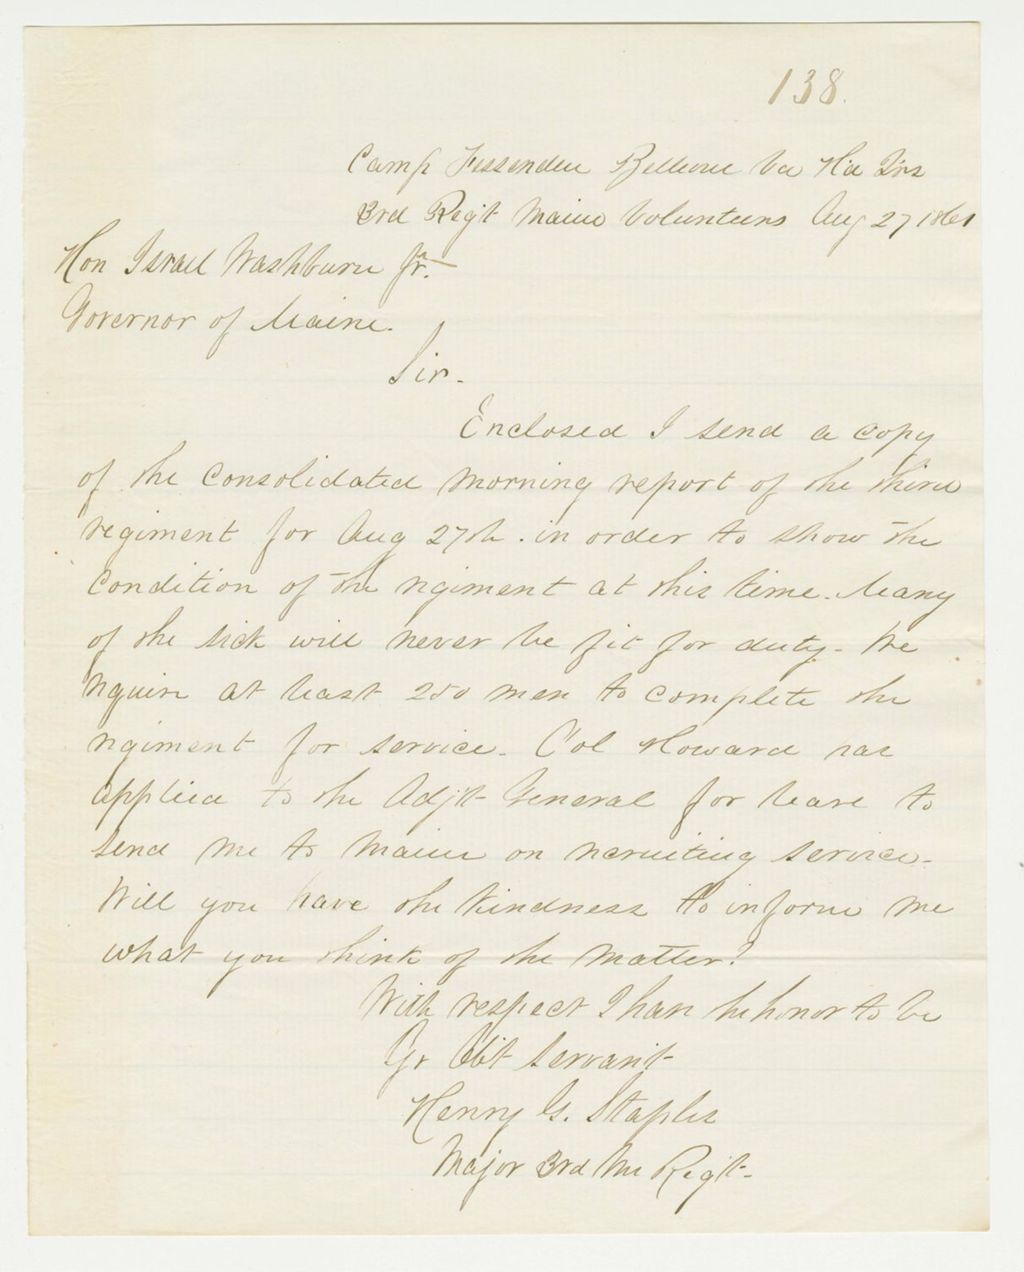 138.
Camp Fessenden Bellevue Va Hd Qrs
3rd Regt Maine Volunteers Aug 27 1861
Hon Israel Washburn Jr.
Governor of Maine.
Sir.
Enclosed I send a copy
of the consolidated morning report of the third
regiment for Aug 27th. in order to show the
condition of the regiment at this time. Many
of the sick will never be fit for duty. We
require at least 250 men to complete the
regiment for service. Col Howard has
applied to the Adjt General for leave to
send me to Maine on recruiting service.
Will you have the kindness to inform me
what you think of the matter?
With respect I have the honor to be
Yr Obt Servant
Henry G. Staples
Major 3rd Me Regt.